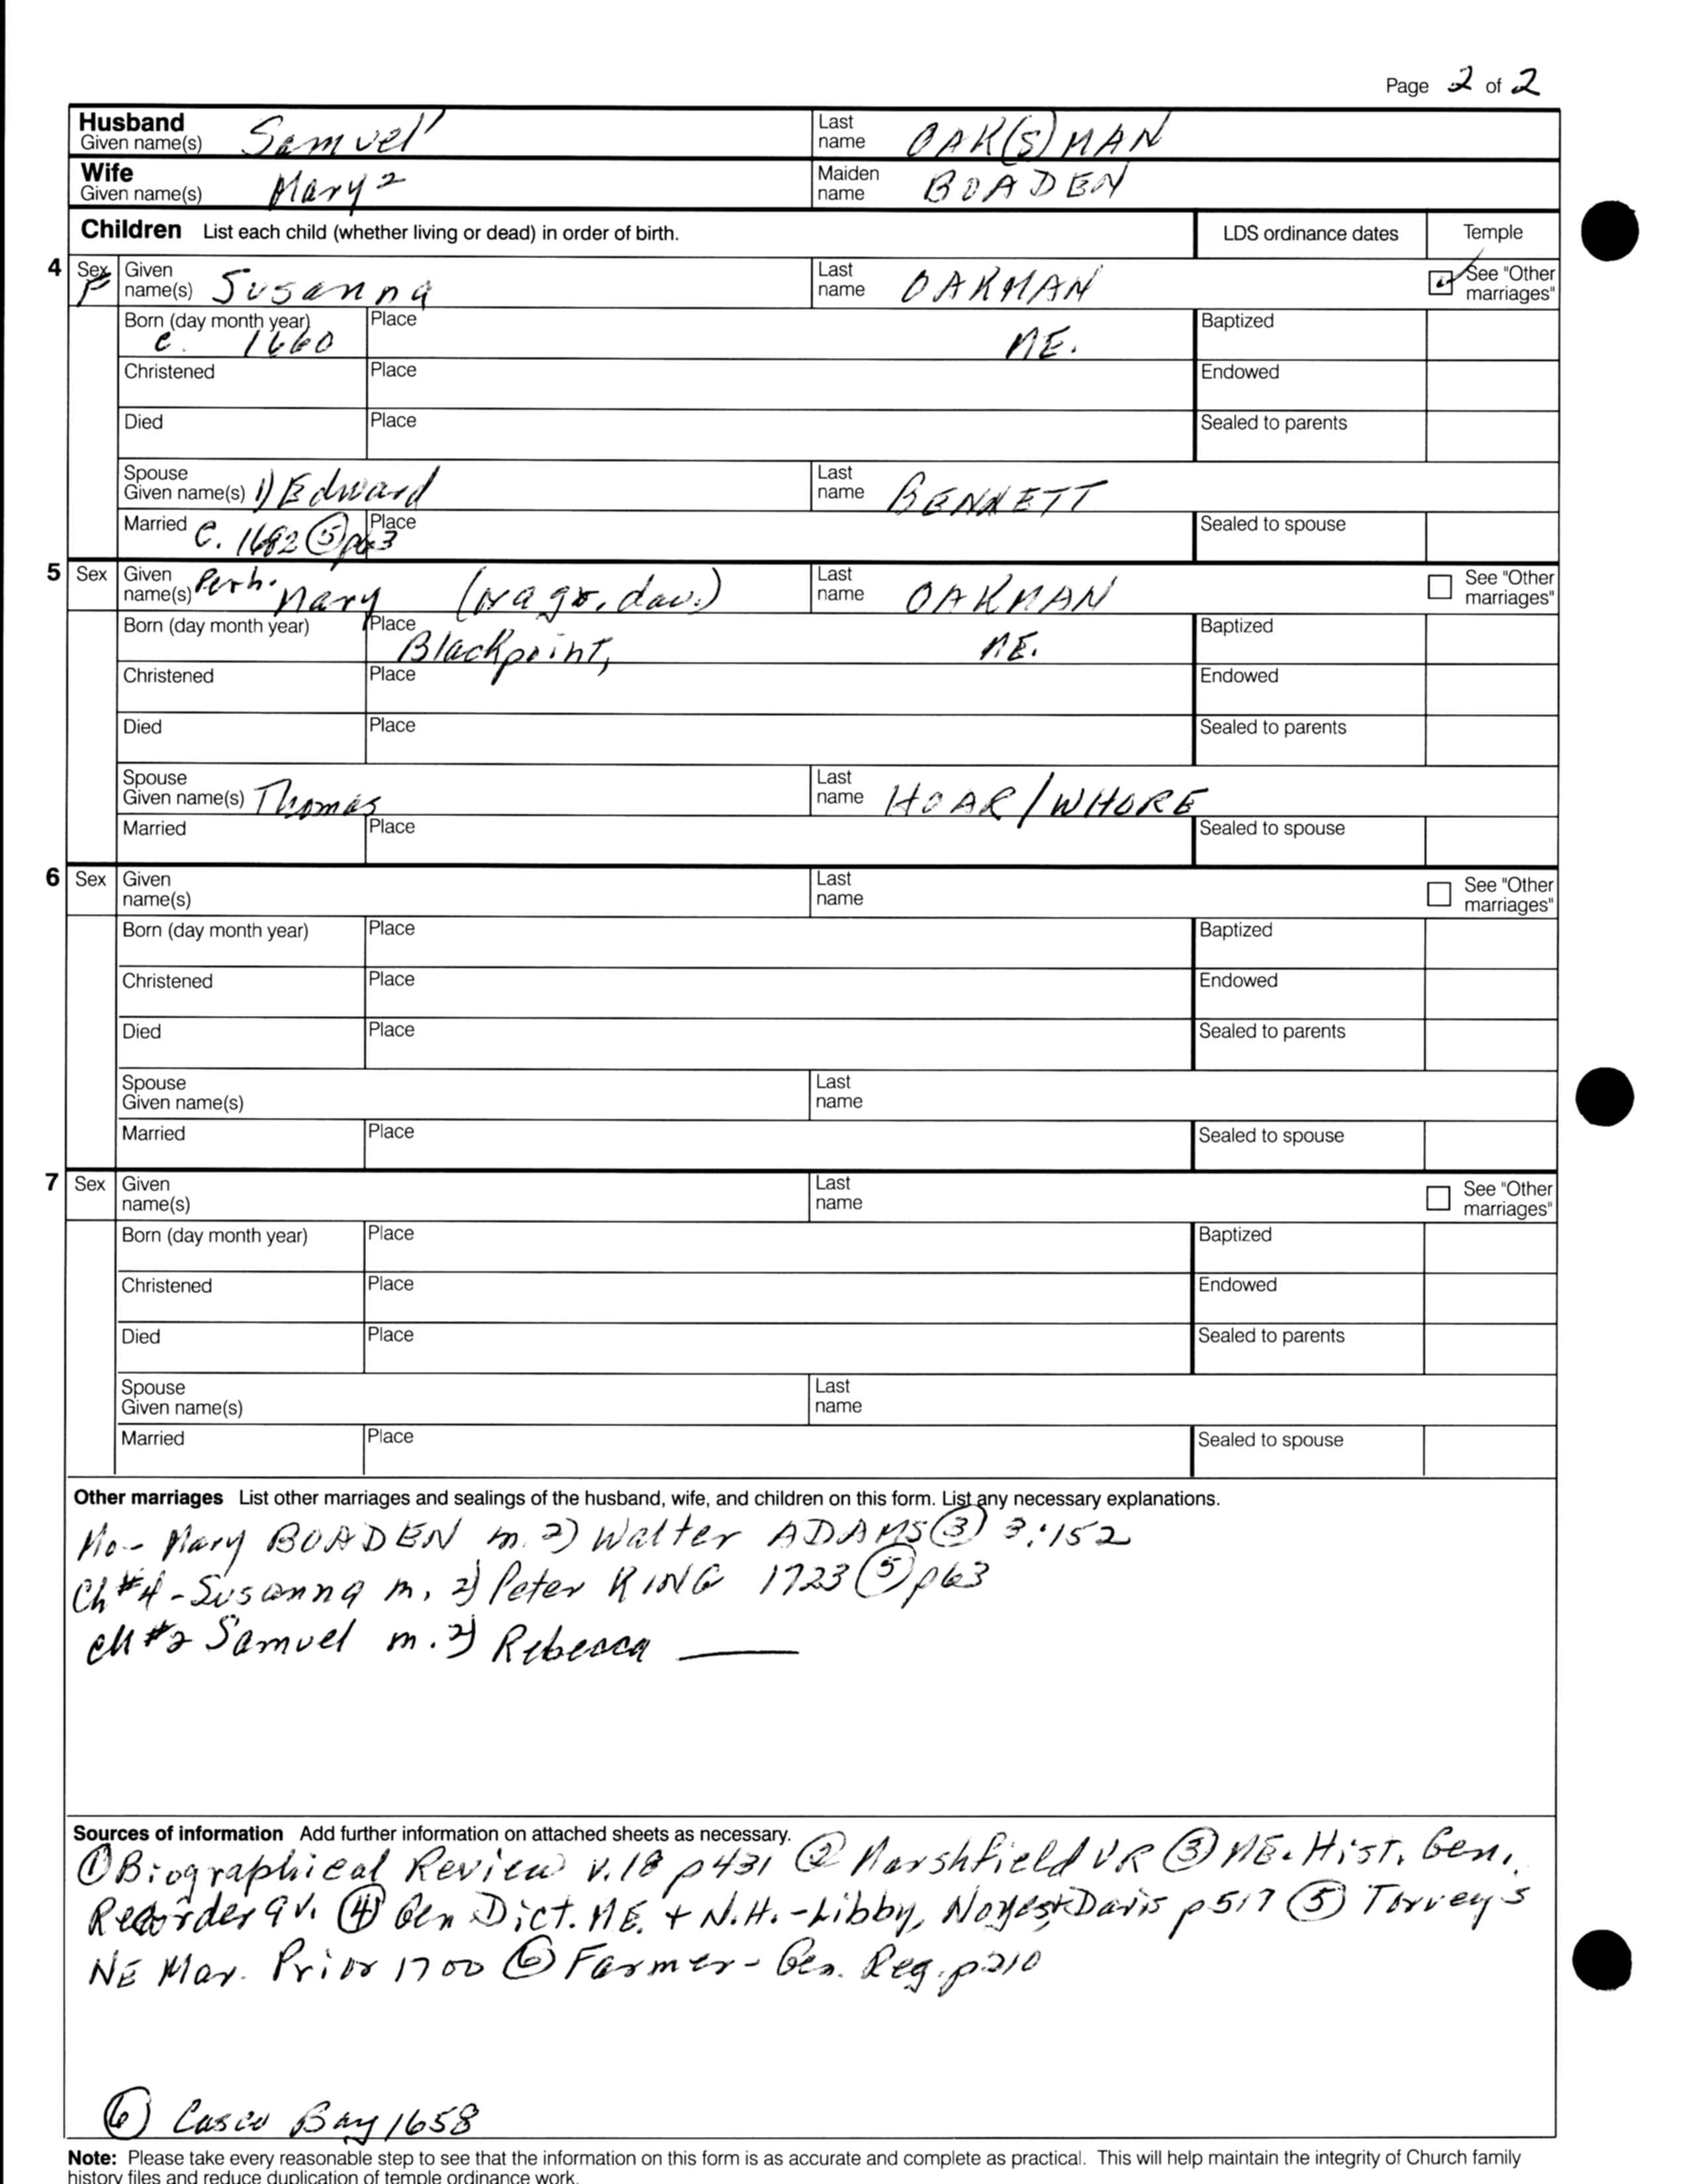 Page 2 of 2
Husband Given name(s) Samuel Last name OAK(S)MAN
Wife Given name(s) Mary 2 Maiden name BOADEN
Children List each child (whether living or dead) in order of birth. LDS ordinance dates Temple
4 Sex F Given name(s) Susanna Last name OAKMAN See "Other marriages"
Born (day month year) c. 1660 Place ME. Baptized
Christened Place Endowed
Died Place Sealed to parents
Spouse Given name(s) 1) Edward Last name BENNETT
Married C. 1682 (5) p63 Place Sealed to spouse
5 Sex Given name(s) Perh. Mary (or a gr. dau.) Last name OAKMAN See "Other marriages"
Born (day month year) Place Blackpoint, ME. Baptized
Christened Place Endowed
Died Place Sealed to parents
Spouse Given name(s) Thomas Last name HOAR/WHORE
Married Place Sealed to spouse
6 Sex Given name(s) Last name See "Other marriages"
Born (day month year) Place Baptized
Christened Place Endowed
Died Place Sealed to parents
Spouse Given name(s) Last name
Married Place Sealed to spouse
7 Sex Given name(s) Last name See "Other marriages"
Born (day month year) Place Baptized
Christened Place Endowed
Died Place Sealed to parents
Spouse Given name(s) Last name
Married Place Sealed to spouse
Other marriages List other marriages and sealings of the husband, wife, and children on this form. List any necessary explanations.
Mo- Mary BOADEN m. 2) Walter ADAMS (3) 3:152
Ch #4 - Susanna m. 2) Peter KING 1723 (5) p63
Ch #2 Samuel m. 2) Rebecca ———
Sources of information Add further information on attached sheets as necessary.
(1) Biographical Review v.18 p431 (2) Marshfield VR (3) ME. Hist. Gen.
Recorder 9 v. (4) Gen Dict. ME. + N.H. - Libby, Noyes + Davis p517 (5) Torrey's
NE Mar. Prior 1700 (6) Farmer - Gen. Reg. p210
(6) Casco Bay 1658
Note: Please take every reasonable step to see that the information on this form is as accurate and complete as practical. This will help maintain the integrity of Church family
history files and reduce duplication of temple ordinance work.